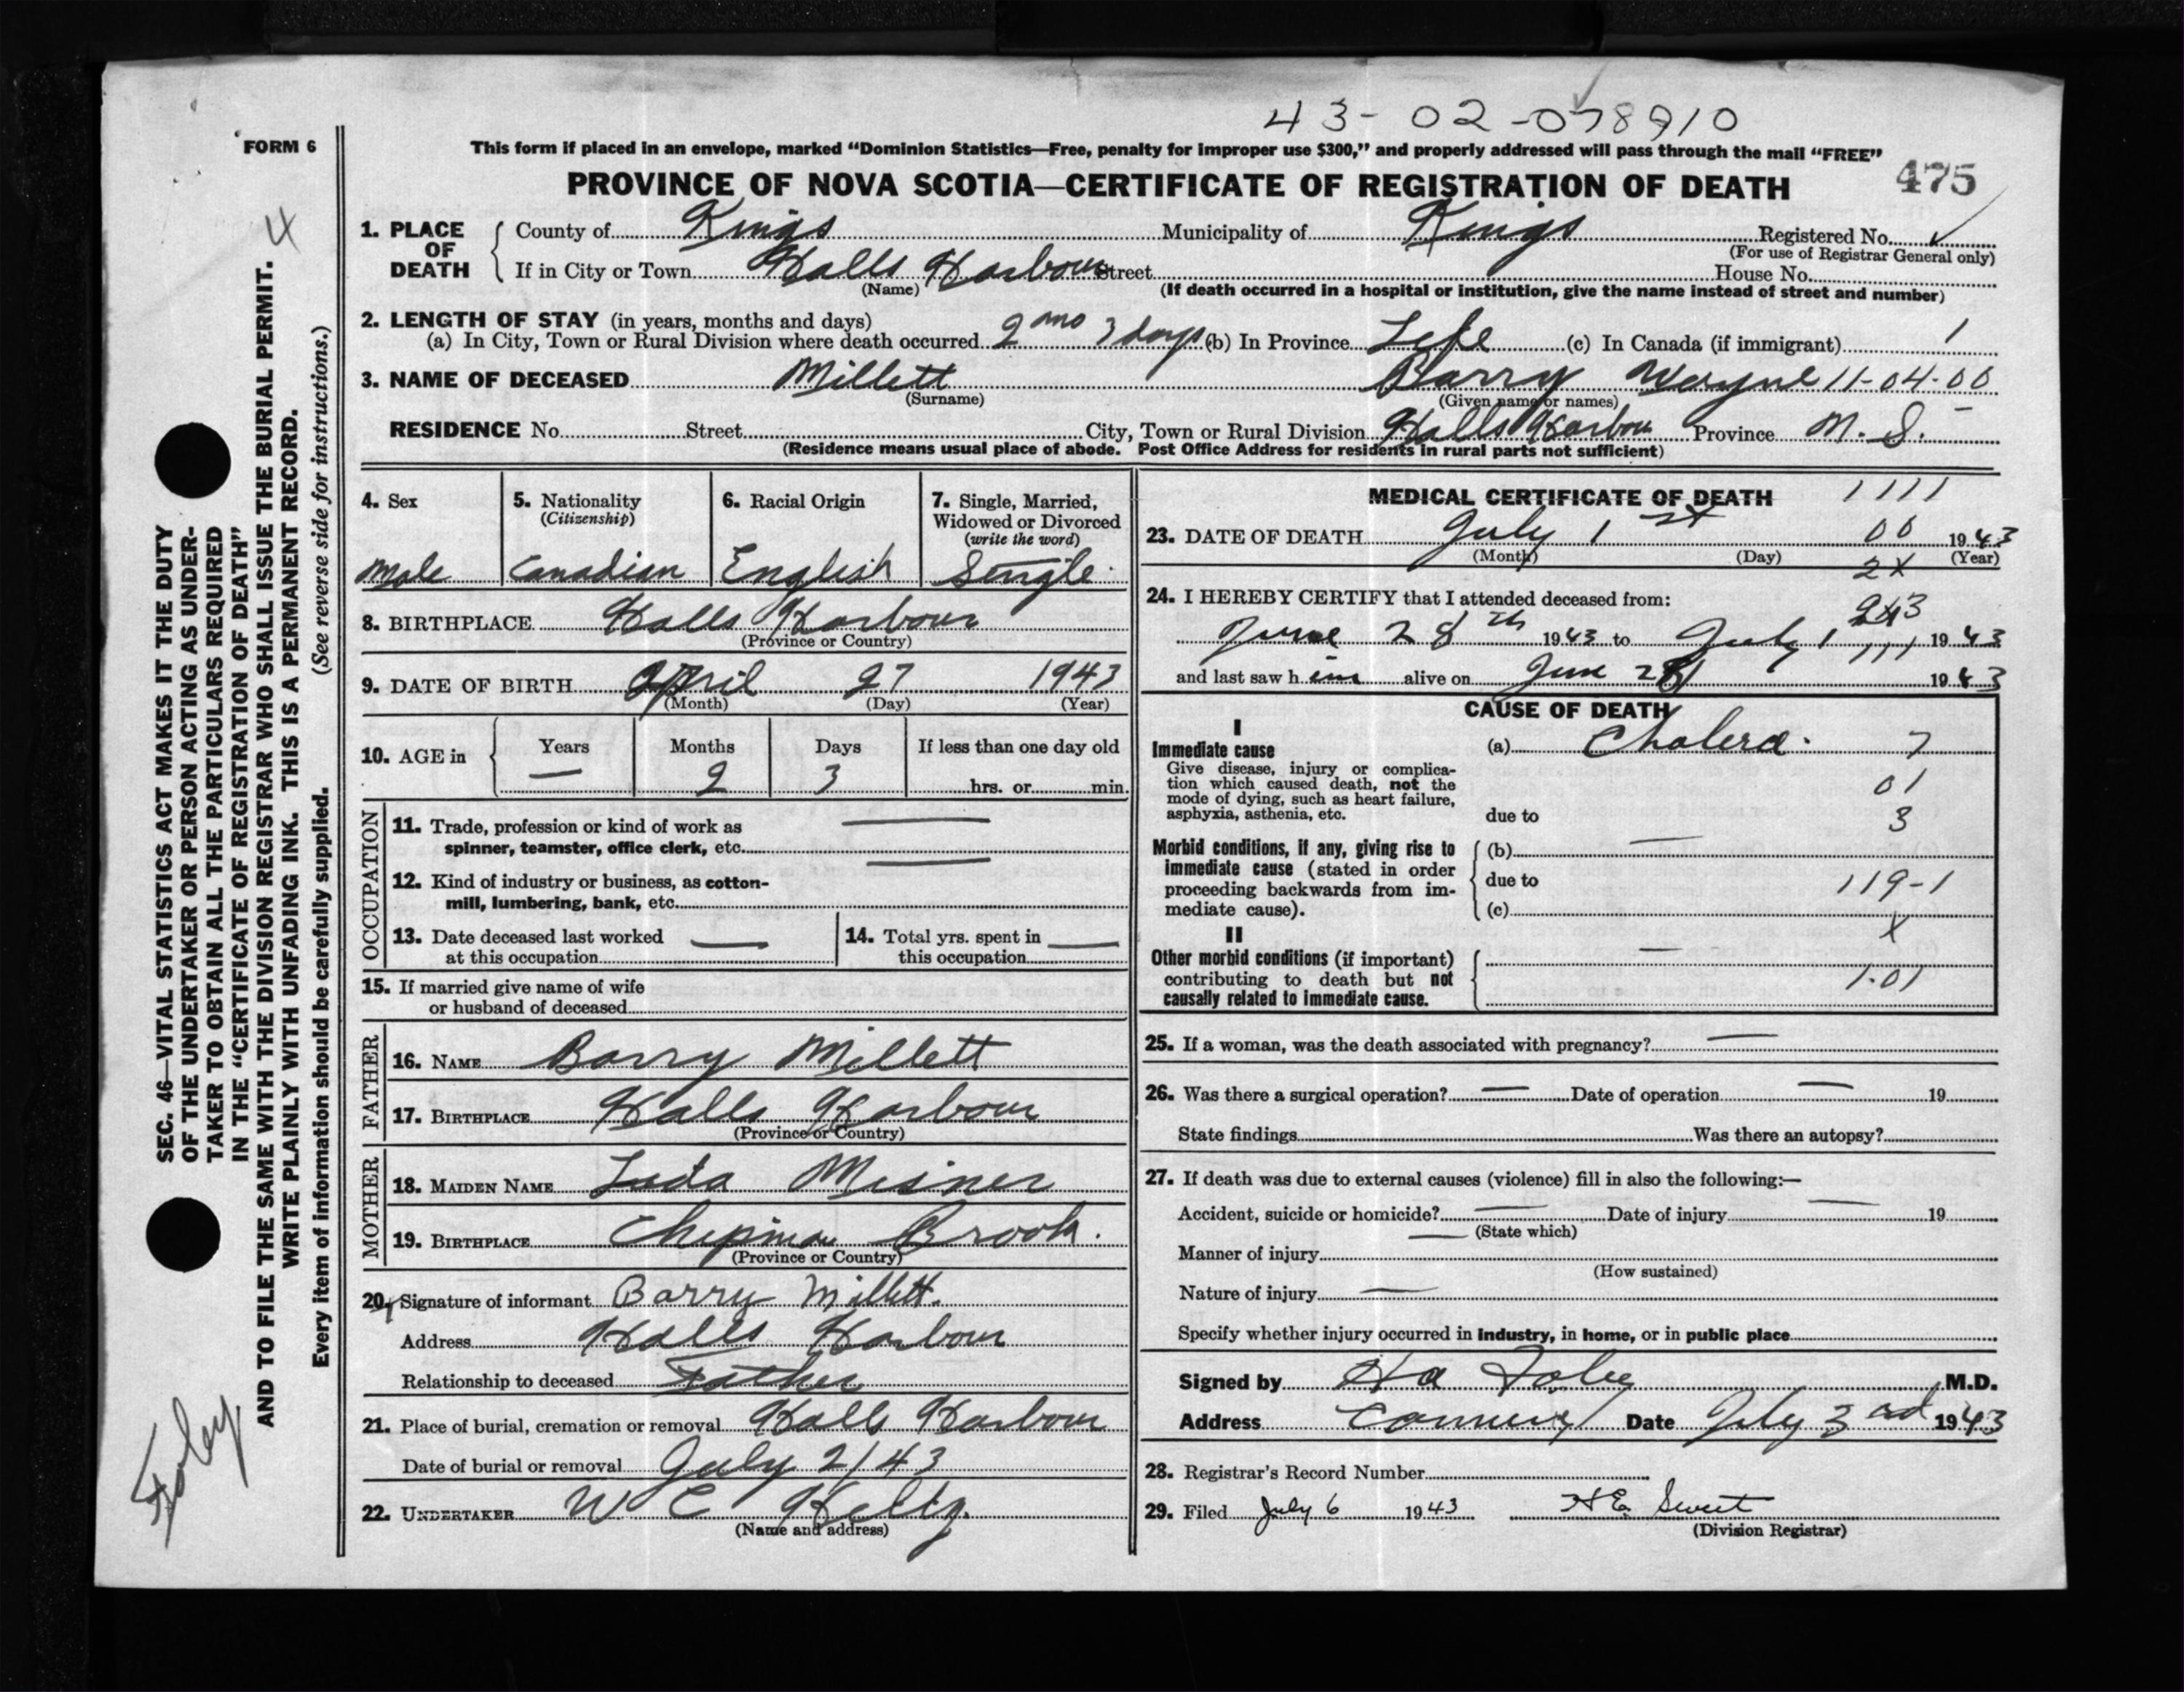 43-02-078910
FORM 6
This form if placed in an envelope, marked "Dominion Statistics—Free, penalty for improper use $300," and properly addressed will pass through the mail "FREE"
PROVINCE OF NOVA SCOTIA—CERTIFICATE OF REGISTRATION OF DEATH 475
1. PLACE OF DEATH
County of Kings Municipality of Kings Registered No.
(For use of Registrar General only)
If in City or Town Halls Harbour Street House No.
(Name) (If death occurred in a hospital or institution, give the name instead of street and number)
2. LENGTH OF STAY (in years, months and days)
(a) In City, Town or Rural Division where death occurred 2 mo 3 days (b) In Province Life (c) In Canada (if immigrant) 1
3. NAME OF DECEASED Millett Barry Wayne 11-04-00
(Surname) (Given name or names)
RESIDENCE No. Street City, Town or Rural Division Halls Harbour Province N. S.
(Residence means usual place of abode. Post Office Address for residents in rural parts not sufficient)
4. Sex
Male
5. Nationality
(Citizenship)
Canadian
6. Racial Origin
English
7. Single, Married,
Widowed or Divorced
(write the word)
Single
8. BIRTHPLACE Halls Harbour
(Province or Country)
9. DATE OF BIRTH April 27 1943
(Month) (Day) (Year)
10. AGE in Years Months Days If less than one day old
— 2 3 hrs. or min.
OCCUPATION
11. Trade, profession or kind of work as
spinner, teamster, office clerk, etc.
12. Kind of industry or business, as cotton-
mill, lumbering, bank, etc.
13. Date deceased last worked
at this occupation
14. Total yrs. spent in
this occupation
15. If married give name of wife
or husband of deceased
FATHER
16. NAME Barry Millett
17. BIRTHPLACE Halls Harbour
(Province or Country)
MOTHER
18. MAIDEN NAME Misner
19. BIRTHPLACE Brook.
(Province or Country)
20. Signature of informant Barry Millett.
Address Halls Harbour
Relationship to deceased Father
21. Place of burial, cremation or removal Halls Harbour
Date of burial or removal July 2/43
22. UNDERTAKER W C
(Name and address)
MEDICAL CERTIFICATE OF DEATH 1111
23. DATE OF DEATH July 1st 00 1943
(Month) (Day) (Year)
2X
24. I HEREBY CERTIFY that I attended deceased from:
June 28th 1943 to July 1 1943
and last saw him alive on June 28 1943
CAUSE OF DEATH
I
Immediate cause (a) Cholera. 7
Give disease, injury or complica-
tion which caused death, not the
mode of dying, such as heart failure,
asphyxia, asthenia, etc.
01
due to 3
Morbid conditions, if any, giving rise to
immediate cause (stated in order
proceeding backwards from im-
mediate cause).
(b)
due to 119-1
(c)
X
II
Other morbid conditions (if important)
contributing to death but not
causally related to immediate cause.
1-01
25. If a woman, was the death associated with pregnancy?
26. Was there a surgical operation? Date of operation 19
State findings Was there an autopsy?
27. If death was due to external causes (violence) fill in also the following:—
Accident, suicide or homicide? Date of injury 19
(State which)
Manner of injury
(How sustained)
Nature of injury
Specify whether injury occurred in industry, in home, or in public place
Signed by Foley M.D.
Address Date July 3rd 1943
28. Registrar's Record Number
29. Filed July 6 1943 H E. Sweet
(Division Registrar)
4
SEC. 46—VITAL STATISTICS ACT MAKES IT THE DUTY
OF THE UNDERTAKER OR PERSON ACTING AS UNDER-
TAKER TO OBTAIN ALL THE PARTICULARS REQUIRED
IN THE "CERTIFICATE OF REGISTRATION OF DEATH"
AND TO FILE THE SAME WITH THE DIVISION REGISTRAR WHO SHALL ISSUE THE BURIAL PERMIT.
WRITE PLAINLY WITH UNFADING INK. THIS IS A PERMANENT RECORD.
Every item of information should be carefully supplied. (See reverse side for instructions.)
Foley